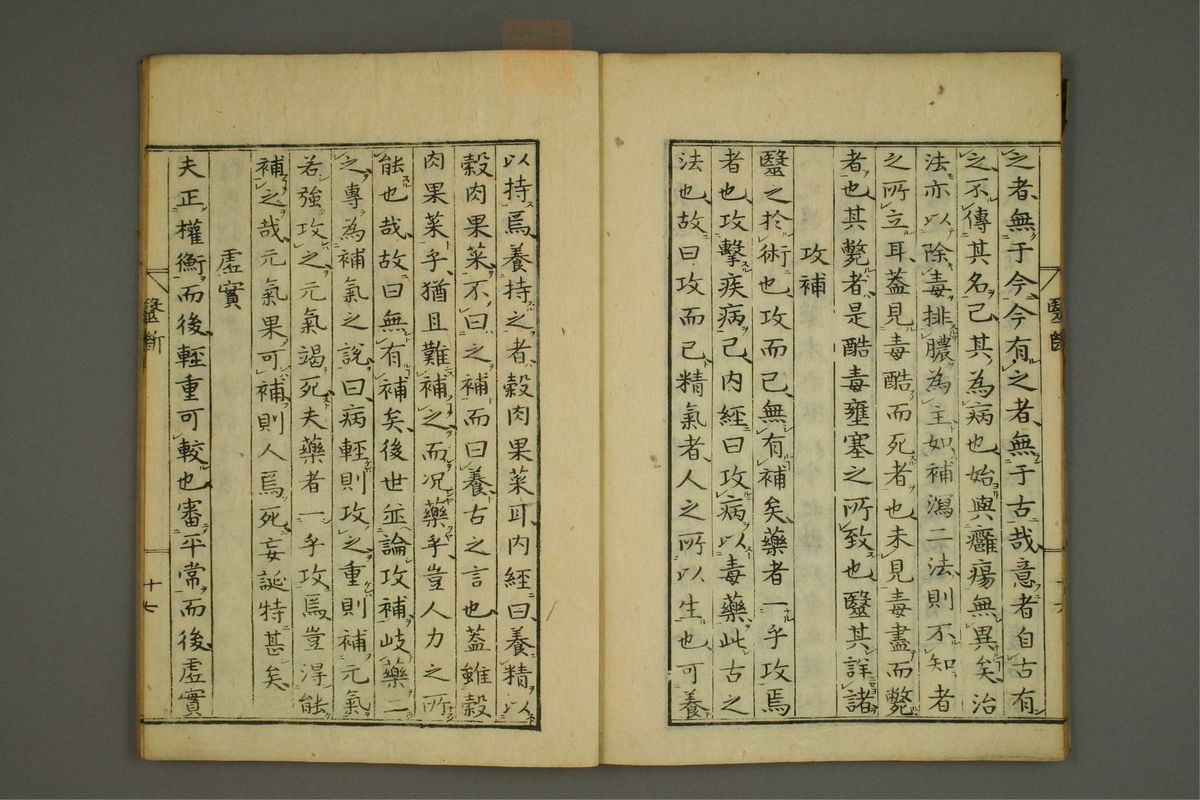 之者無于今今有之者無于古哉意者自古有
之不傳其名已其為病也始與癰瘍無異矣治
法亦以除毒排膿為主如補瀉二法則不知者
之所立耳蓋見毒酷而死者也未見毒盡而斃
者也其斃者是酷毒壅塞之所致也醫其詳諸
攻補
醫之於術也攻而已無有補矣藥者一乎攻焉
者也攻擊疾病已內經曰攻病以毒藥此古之
法也故曰攻而已精氣者人之所以生也可養
以持焉養持之者穀肉果菜耳內經曰養精以
穀肉果菜不曰之補而曰養古之言也蓋雖穀
肉果菜乎猶且難補之而況藥乎豈人力之所
能也哉故曰無有補矣後世並論攻補岐藥二
之專為補氣之說曰病輕則攻之重則補元氣
若強攻之元氣竭死夫藥者一乎攻焉豈得能
補之哉元氣果可補則人焉死妄誕特甚矣
虛實
夫正權衡而後輕重可較也審平常而後虛實
醫斷
十七